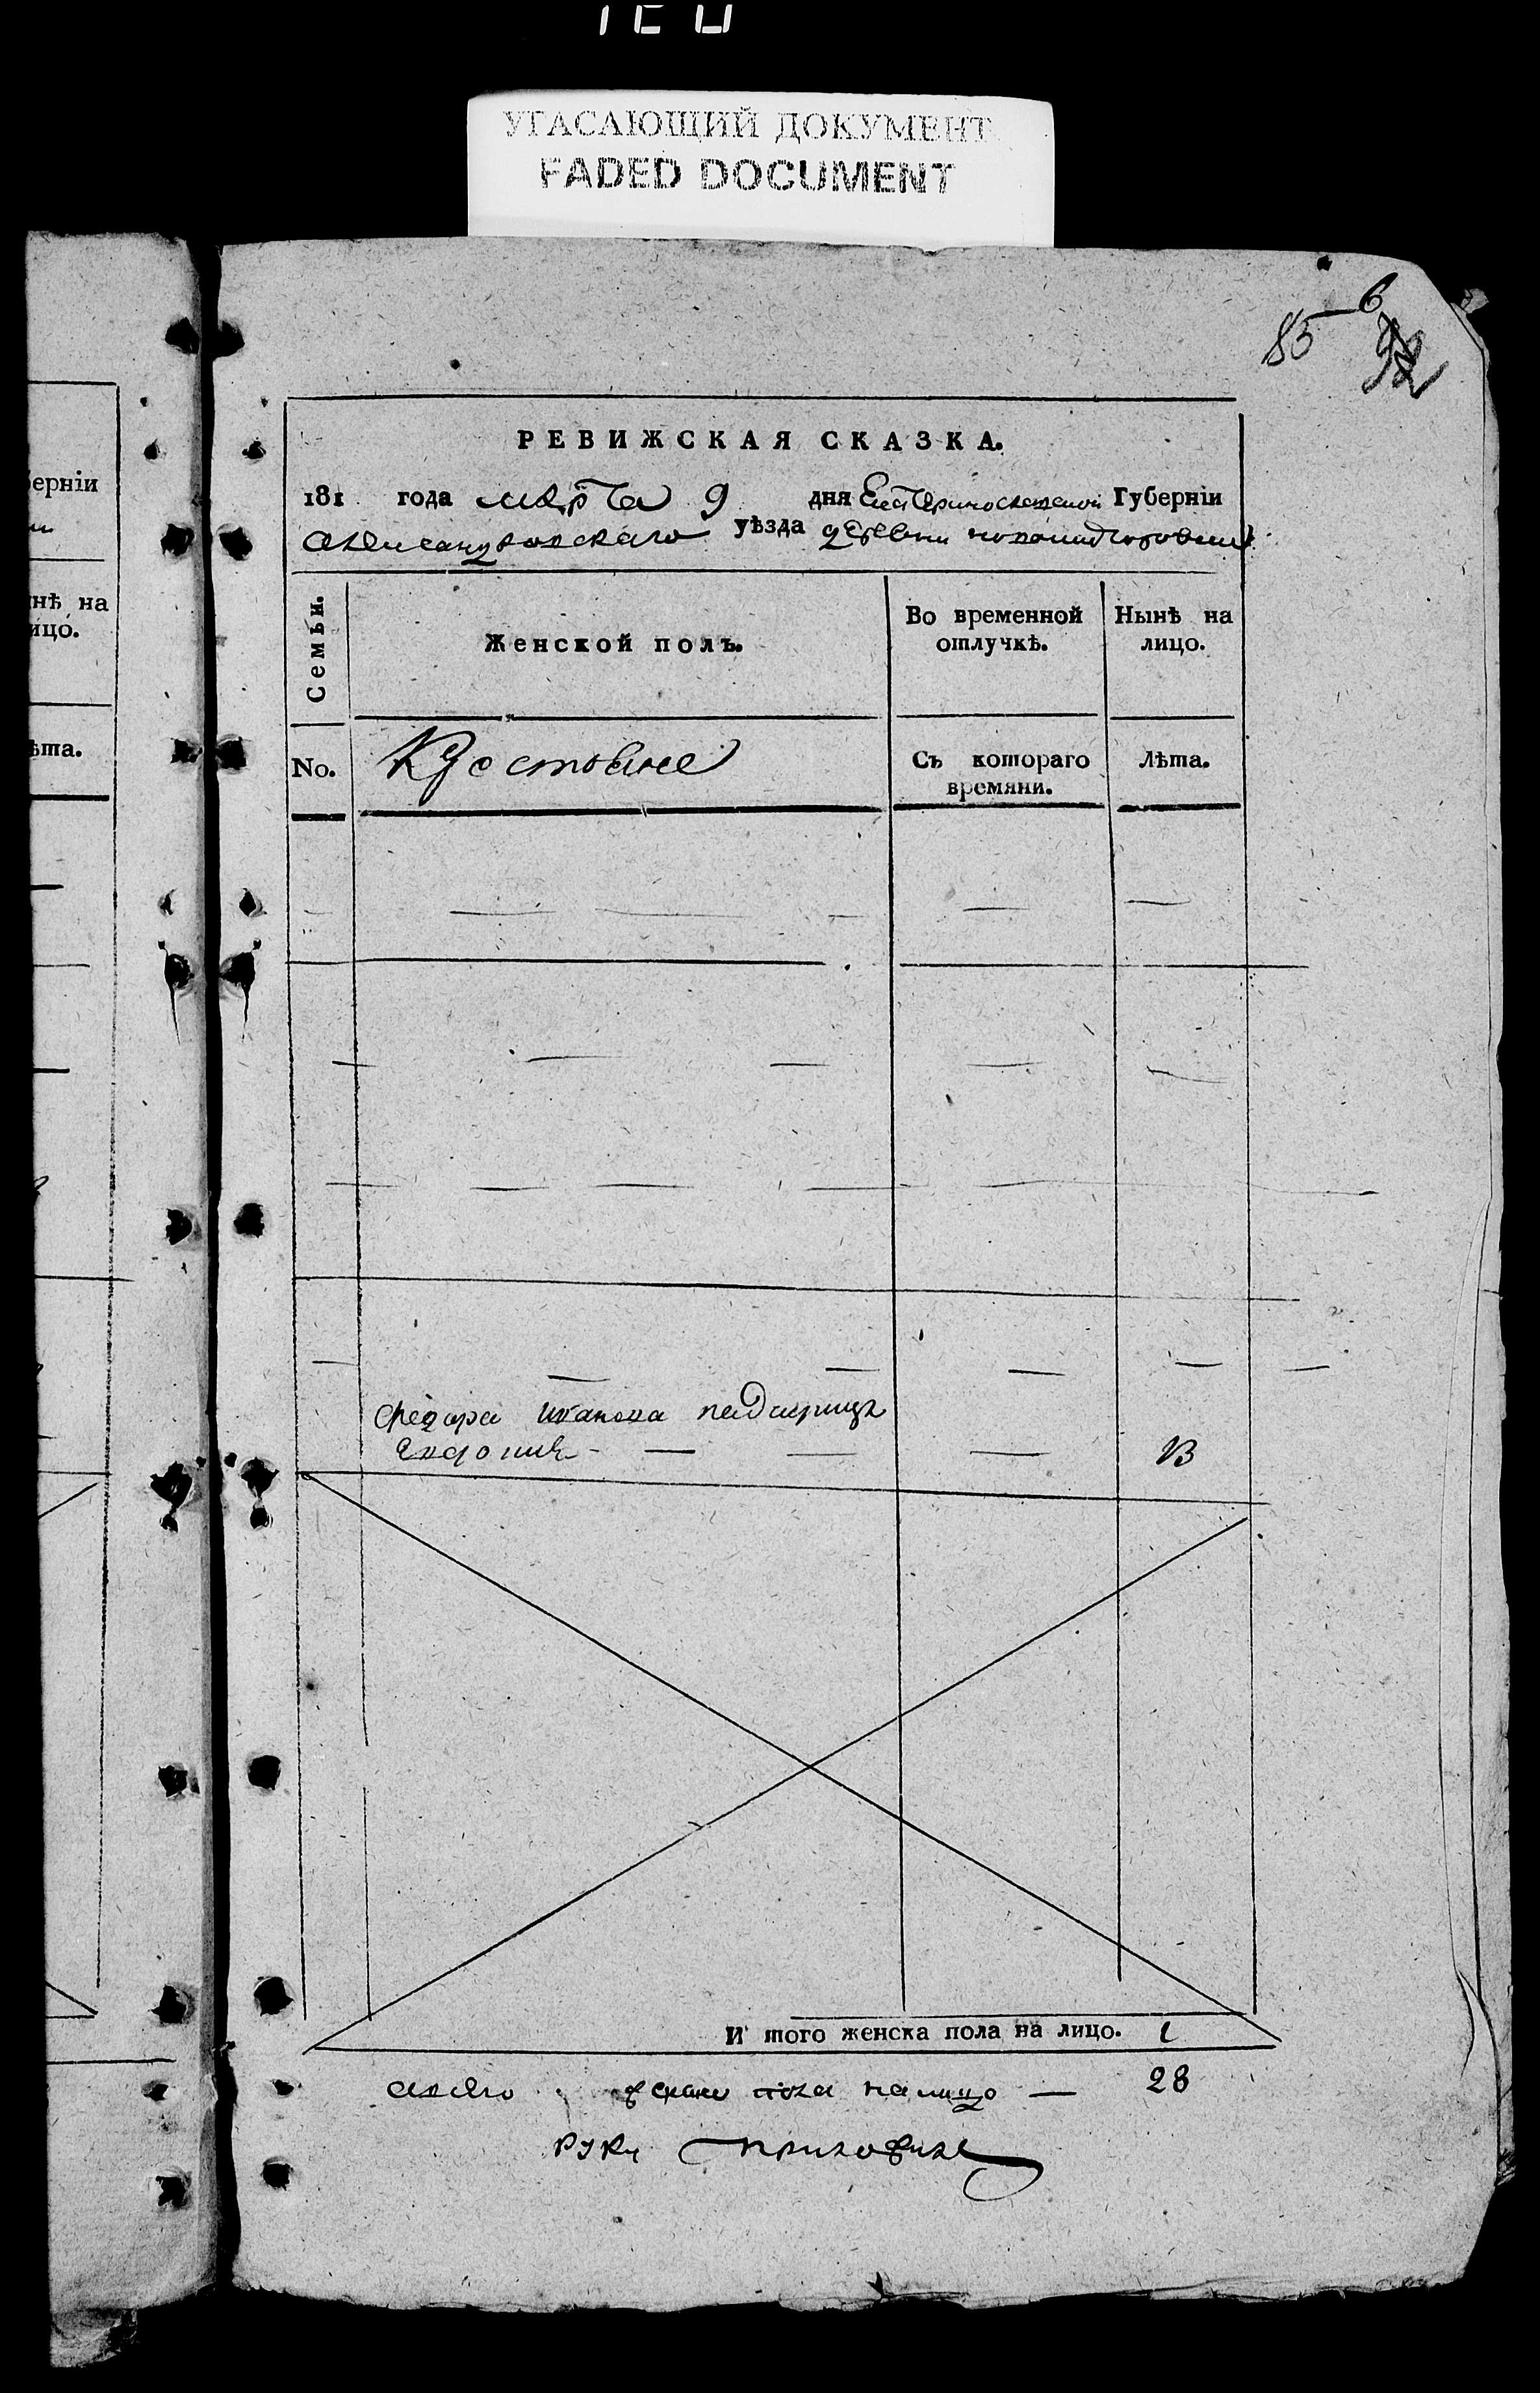 УГАСАЮЩИЙ ДОКУМЕНТ
FADED DOCUMENT
85 6
92
РЕВИЖСКАЯ СКАЗКА.
181 года марта 9 дня Екатеринославской Губерніи
александровскаго уѣзда деревни
Семьи.
Женской полъ.
Во временной отлучкѣ.
Нынѣ на лицо.
No.
Съ котораго времяни.
Лѣта.
федора иванова падчерица
13
И того женска пола на лицо. 1
всего женска пола налицо — 28
руку приложилъ
ерніи
нѣ на
ицо.
ѣта.